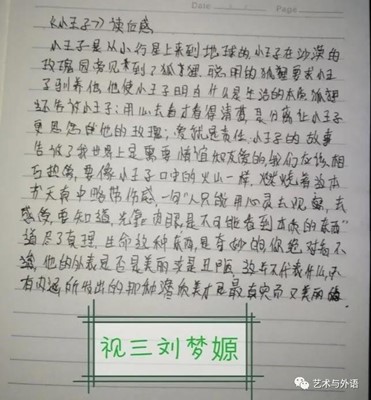 Date Page
《小王子》读后感
小王子是从小行星上来到地球的,小王子在沙漠的
玫瑰园旁见到了狐狸,聪明的狐狸要求小王
子驯养他,他使小王子明白什么是生活的本质,狐狸
还告诉小王子:用心去看才看得清楚,是分离让小王子
更思念他的玫瑰;爱就是责任,小王子的故事
告诉了我世界上是需要情谊和友爱的,我们应该相
互热爱,要像小王子口中的火山一样,燃烧着
书天真中略带伤感,一句"人只能用心灵去观察,去
感觉,要知道,光靠肉眼是不可能看到本质的东西"
道尽了真理,生命这种东西,是奇妙的你绝对看不
他的外表是否是美丽或是丑陋,这并不代表什么,
有内涵所付出的那种潜质美才是最真实而又美丽的
视三刘梦嫄
艺术与外语